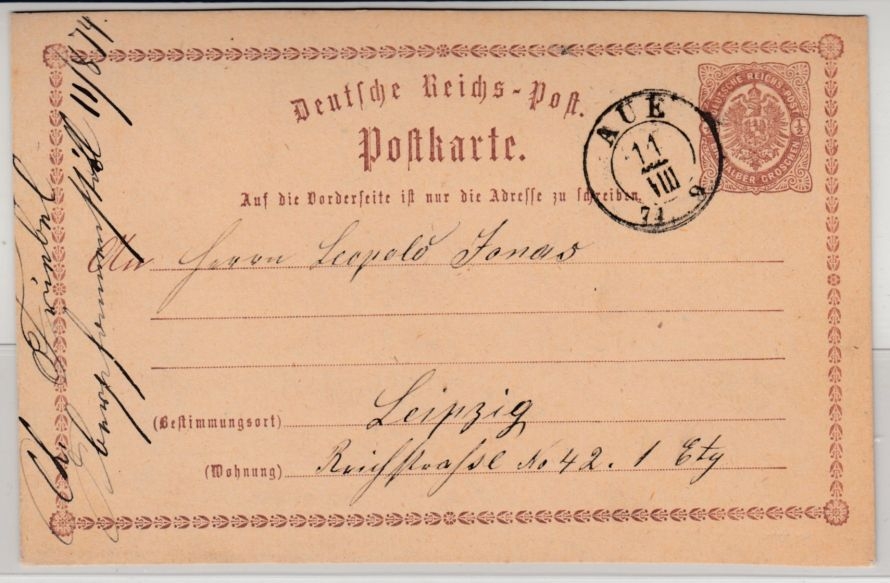 Deutsche Reichs-Post.
Postkarte.
Auf die Vorderseite ist nur die Adresse zu schreiben.
DEUTSCHE REICHS-POST
½
EIN HALBER GROSCHEN
AUE
11
VIII
74
An Herrn Leopold Jonas
(Bestimmungsort) Leipzig
(Wohnung) Reichstrasse No 42. 1 Etg
11/8 74.